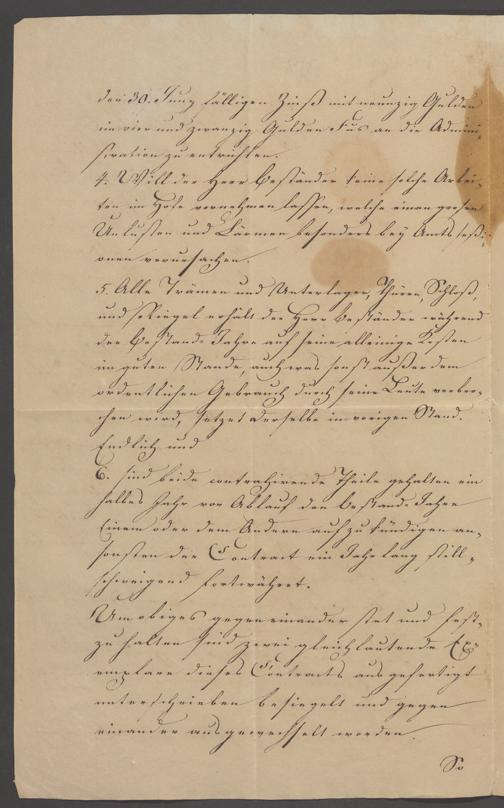 den 30. Juny fälligen Zinß mit neunzig Gulden
im vier und zwanzig Gulden Fus an die Admini-
stration zu entrichten.
4. Will der Herr Beständer keine solche Arbei-
ten im Hofe vornehmen lassen, welche einen grosen
Unlusten und Lärmen besonders bey Amts Sessi-
onen verursachen.
5. Alle Trämen und Unterlager, Thüren, Schloß,
und Riegel erhält der Herr Beständer während
der Bestands Jahre auf seine alleinige Kosten
im guten Stande, auch was sonst außer dem
ordentlichen Gebrauch durch seine Leute verbro-
chen wird, setzet derselbe in vorigen Stand.
Endlich und
6. sind beide contrahirende Theile gehalten ein
halbes Jahr vor Ablauf der Bestands Jahre
Einem oder dem Andern aufzukündigen an-
sonsten der Contract ein Jahr lang still-
schweigend fortwähret.
Um obiges gegen einander stet und fest-
zu halten sind zwei gleichlautende Ex-
emplare dieses Contracts ausgefertigt
unterschrieben besiegelt und gegen
einander ausgewechselt worden.
So